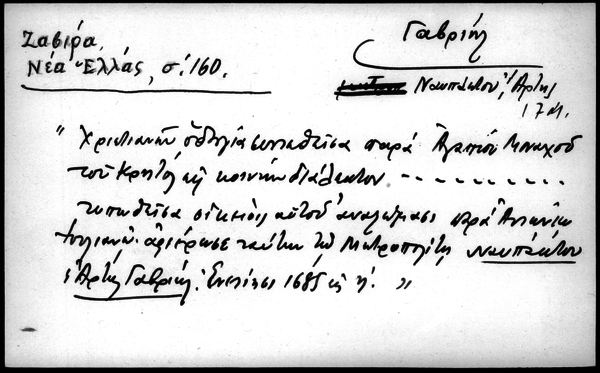 Ζαβίρα,
Νέα Ἑλλάς, σ. 160.
Γαβριήλ
Ναυπάκτου, Ἄρτης
17 αι.
"Χριστιανῶν ὁδηγία συντεθεῖσα παρά Ἀγαπίου Μοναχοῦ
τοῦ Κρητός εἰς κοινήν διάλεκτον ---------
τυπωθεῖσα οἰκείοις αὐτοῦ ἀναλώμασι παρά Ἀντωνίῳ
Ἰουλιανῷ. ἀφιέρωσε ταύτην τῷ Μητροπολίτῃ Ναυπάκτου
& Ἄρτης Γαβριήλ. Ἐνετίησι 1685 εἰς η'."